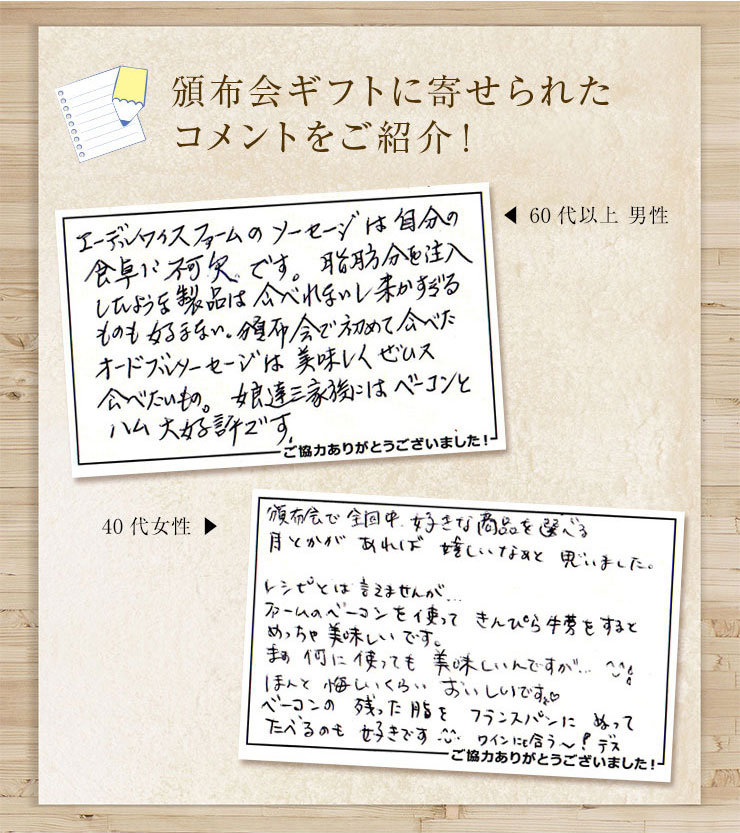 頒布会ギフトに寄せられた
コメントをご紹介！
◀ 60代以上 男性
エーデルワイスファームのソーセージは自分の
食卓に不可欠です。脂肪分を注入
したような製品は食べれないし柔かすぎる
ものも好まない。頒布会で初めて食べた
オードブルソーセージは美味しくぜひ又
食べたいもの。娘達三家族にはベーコンと
ハム大好評です。
ご協力ありがとうございました！
40代女性 ▶
頒布会で全回中、好きな商品を選べる
月とかがあれば嬉しいなぁと思いました。
レシピとは言えませんが…
ファームのベーコンを使ってきんぴら牛蒡をすると
めっちゃ美味しいです。
まぁ何に使っても美味しいんですが…
ほんと悔しいくらいおいしいです。♡
ベーコンの残った脂をフランスパンにぬって
たべるのも好きです ワインにも合う〜！デス
ご協力ありがとうございました！